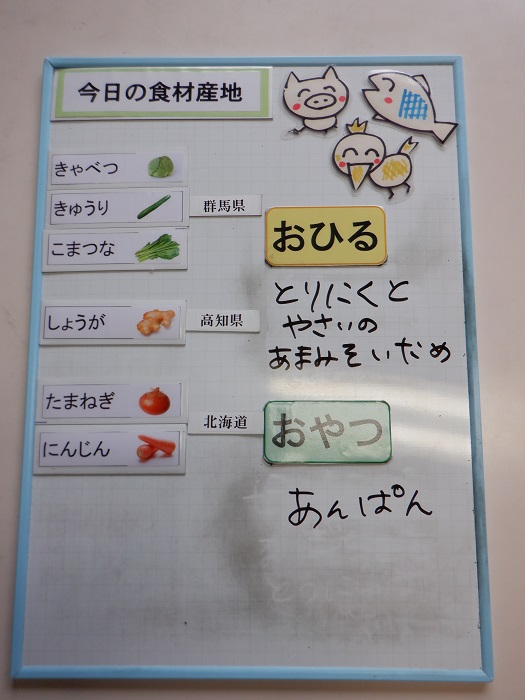 今日の食材産地
きゃべつ
きゅうり
群馬県
こまつな
しょうが
高知県
たまねぎ
北海道
にんじん
おひる
とりにくと
やさいの
あまみそいため
おやつ
あんぱん